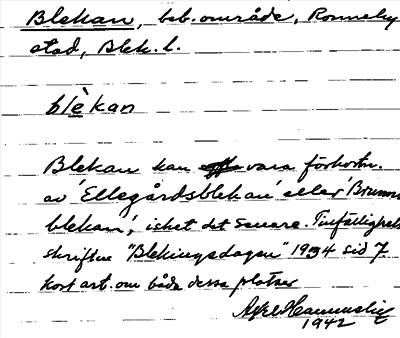 Blekan, beb.område, Ronneby
stad, Blek. l.
blèkan
Blekan kan vara förkortn.
av 'Ellegårdsblekan' eller 'Brunns-
blekan', icket det senare. Tillfällighets-
skriften "Blekingsdagen" 1934 sid 7
kort art. om båda dessa platser
1942